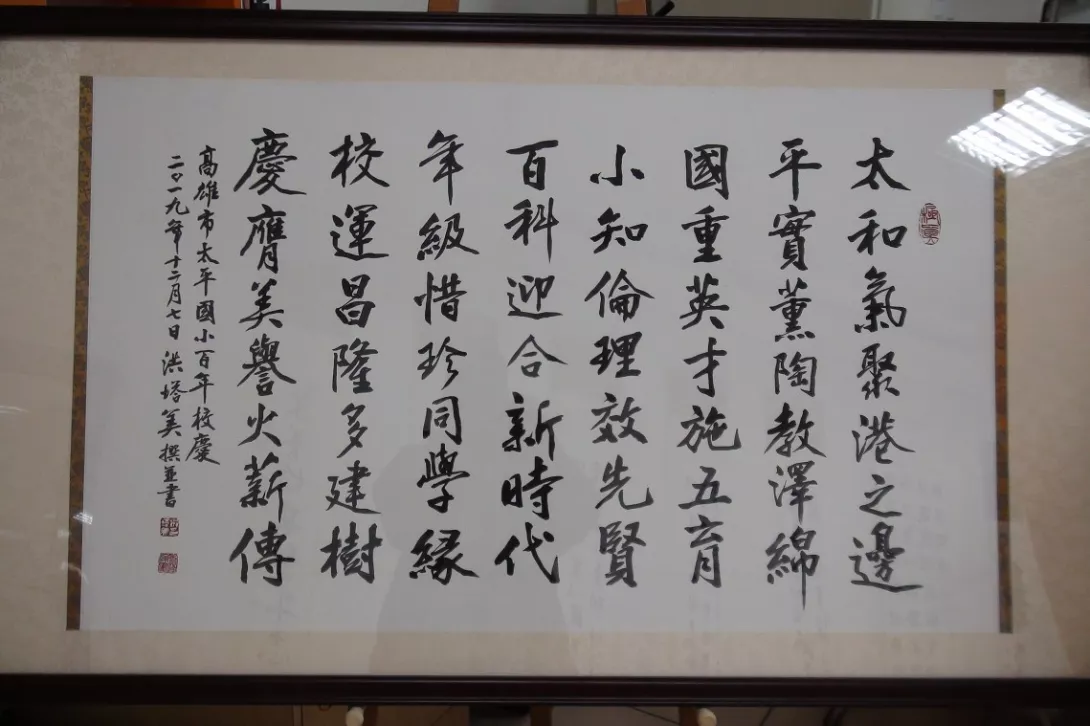 太和氣聚港之邊
平實薰陶教澤綿
國重英才施五育
小知倫理效先賢
百科迎合新時代
年級惜珍同學緣
校運昌隆多建樹
慶膺美譽火薪傳
高雄市太平國小百年校慶
二〇一九年十二月七日 洪塔美撰並書